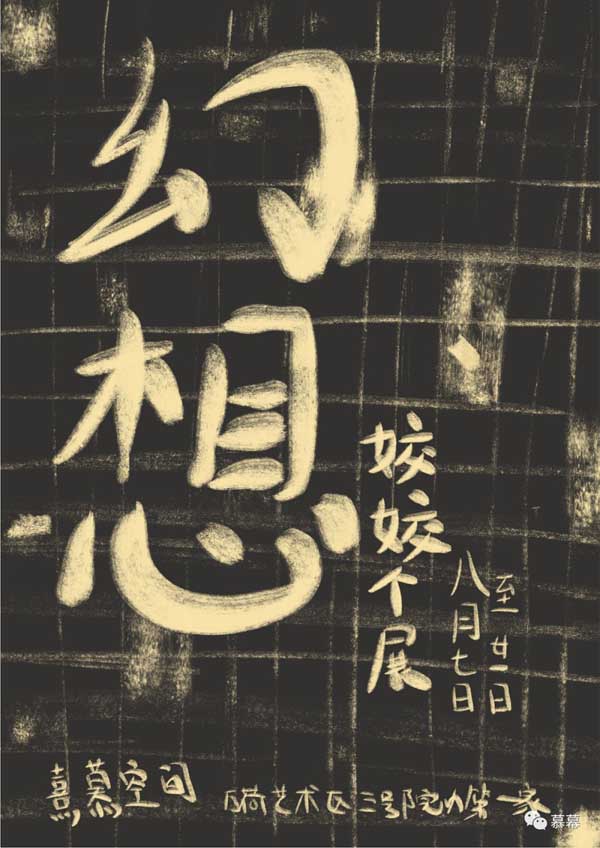 幻想
姣姣个展
八月七日
至廿一日
熹慕空间
艺术区三号院内第一家
慕幕